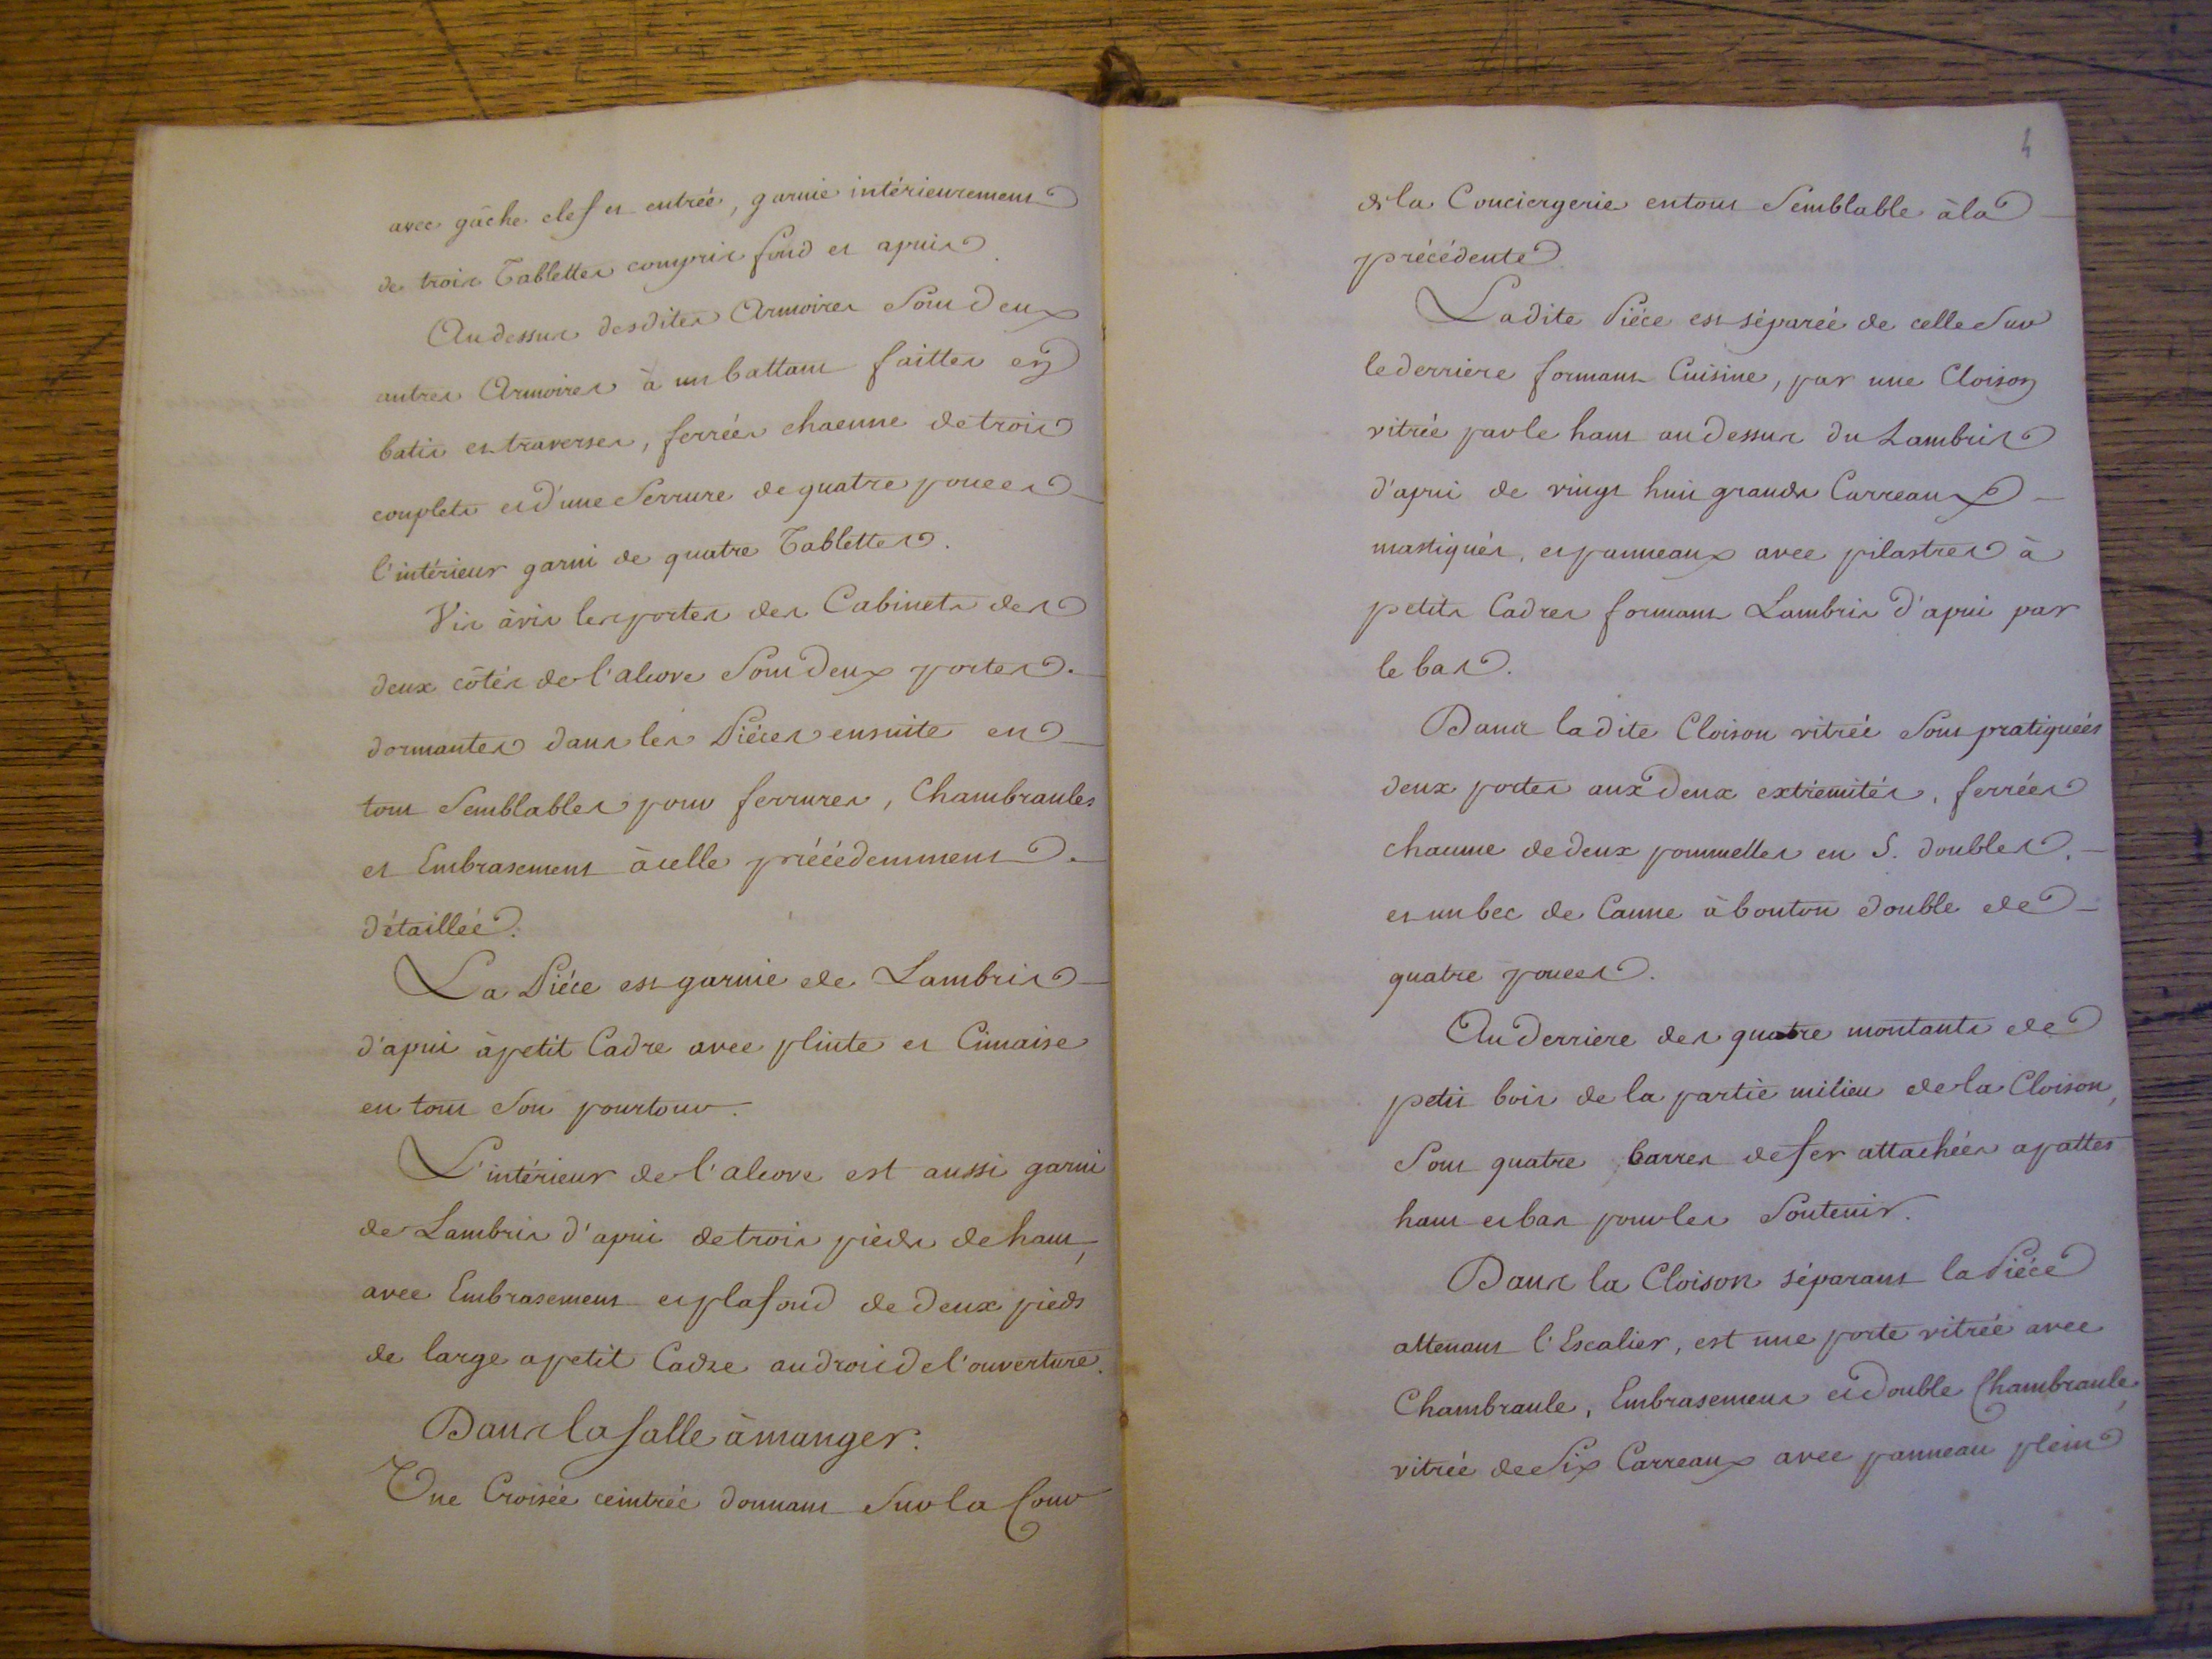 avec gâche clef et entrée, garnie intérieurement
de trois Tablettes compris fond et apuis.
Au dessus desdites Armoires Sont deux
autres Armoires à un battant faittes en
batis et traverses, ferrées chacune de trois
couplets et d'une Serrure de quatre pouces
l'intérieur garni de quatre Tablettes.
Vis àvis les portes des Cabinets des
deux côtés de l'alcove Sont deux portes.
dormantes dans les Piéces ensuite en
tout Semblables pour ferrures, Chambranles
et Embrasement à celle précédemment.
détaillée.
La Piéce est garnie de Lambris
d'apui à petit Cadre avec plinte et Cimaise
en tout Son pourtour.
L'intérieur de l'alcove est aussi garni
de Lambris d'apui de trois pieds de haut,
avec Embrasement et plafond de deux pieds
de large a petit Cadre au droit de l'ouverture.
Dans la Salle à manger.
Une Croisée ceintrée donnant Sur la Cour
4
de la Conciergerie en tout Semblable à la
précédente.
Ladite Piéce est séparée de celle Sur
le derriere formant Cuisine, par une Cloison
vitrée par le haut au dessus du Lambris
d'apui de vingt huit grands Carreaux
mastiqués, et panneaux avec pilastres à
petits Cadres formant Lambris d'apui par
le bas.
Dans ladite Cloison vitrée Sont pratiquées
deux portes aux deux extrémités, ferrées
chacune de deux pommelles en S. doubles.
et un bec de Canne à bouton double de
quatre pouces.
Au derriere des quatre montants de
petit bois de la partie milieu de la Cloison,
Sont quatre barres de fer attachées a pattes
haut et bas pour les Soutenir.
Dans la Cloison séparant la Piéce
attenant l'Escalier, est une porte vitrée avec
Chambranle, Embrasement et double Chambranle,
vitrée de Six Carreaux avec panneau plein